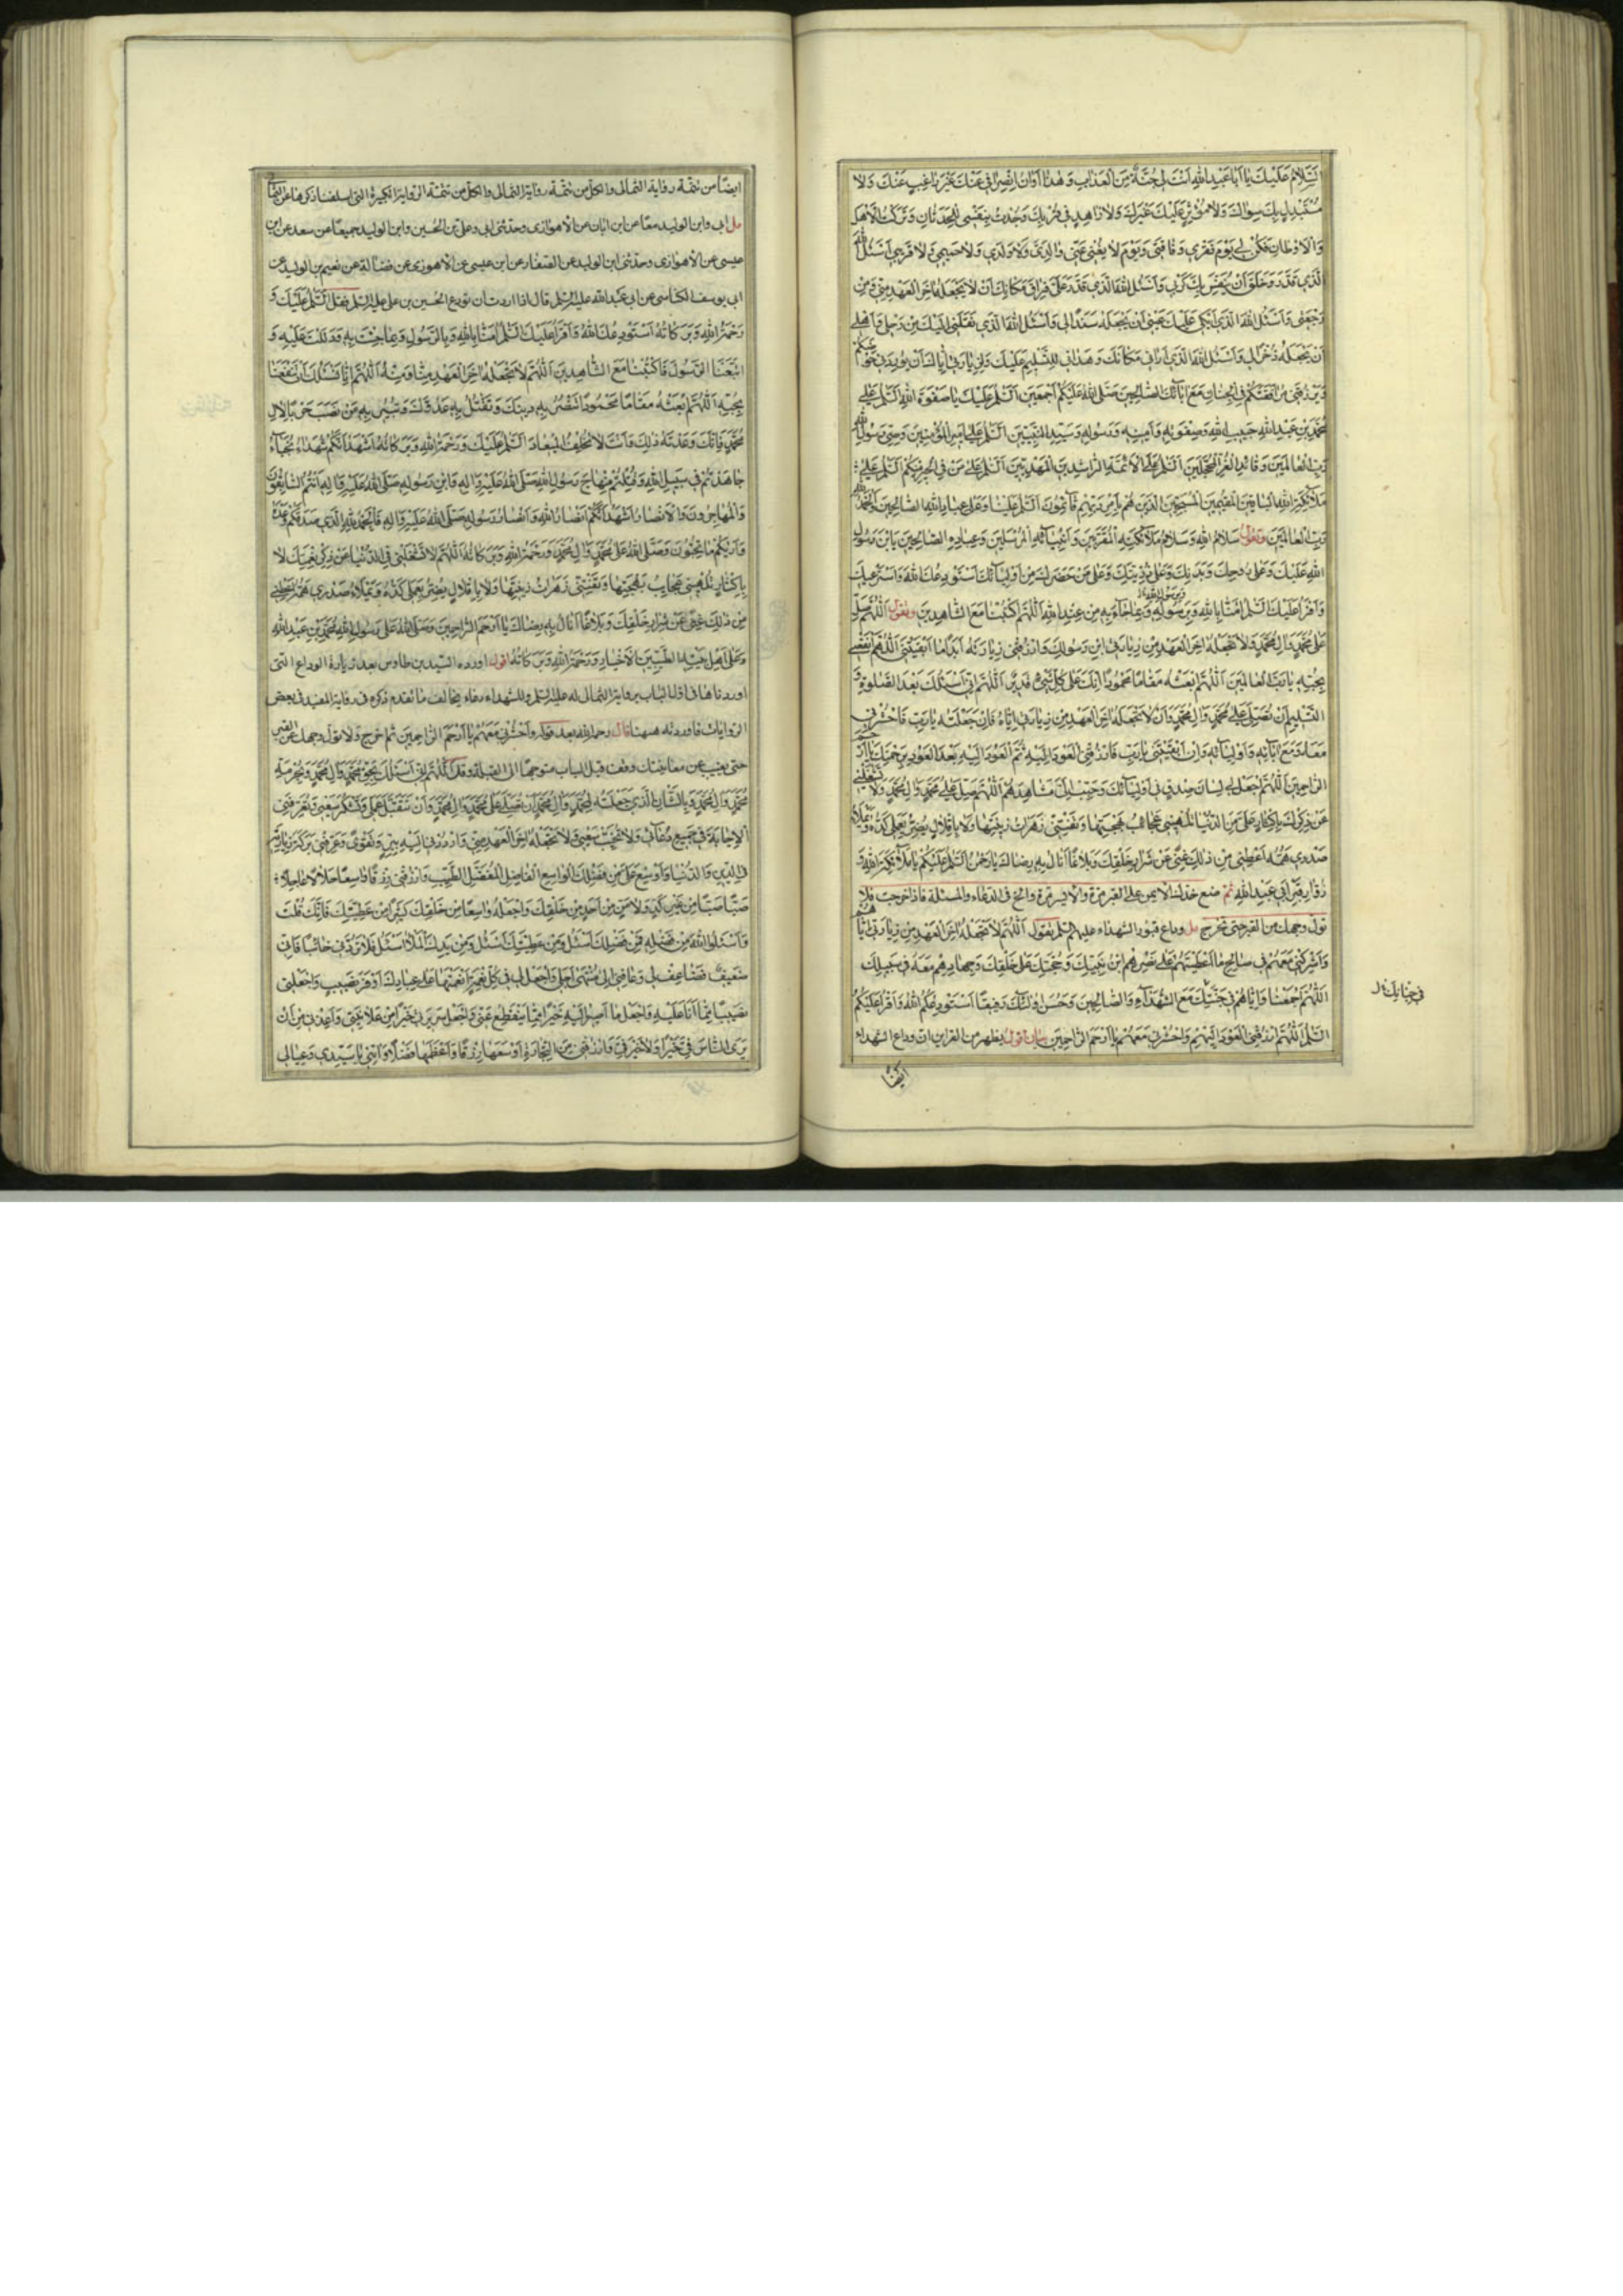 السَّلامُ عَلَيْكَ يا اَبا عَبْدِ اللهِ اَنْتَ لى جُنَّةٌ مِنَ الْعَذابِ وَ هٰذا اَوانُ انْصِرافى عَنْكَ غَيْرَ راغِبٍ عَنْكَ وَلا
مُسْتَبْدِلٍ بِكَ سِواكَ وَلا مُؤْثِرٍ عَلَيْكَ غَيْرَكَ وَلا زاهِدٍ فى قُرْبِكَ وَجُدْتُ بِنَفْسى لِلْحَدَثانِ وَتَرَكْتُ الْاَهْلَ
وَالْاَوْطانَ فَكُنْ لى يَوْمَ فَقْرى وَفاقَتى وَيَوْمَ لا يُغْنى عَنّى والِدَىَّ وَلا وَلَدى وَلا حَميمى وَلا قَريبى اَسْئَلُ اللهَ
الَّذى قَدَّرَ وَخَلَقَ اَنْ يُنَفِّسَ بِكَ كَرْبى وَاَسْئَلُ اللهَ الَّذى قَدَّرَ عَلَىَّ فِراقَ مَكانِكَ اَنْ لا يَجْعَلَهُ اٰخِرَ الْعَهْدِ مِنّى وَمِنْ
رَجْعَتى وَاَسْئَلُ اللهَ الَّذى اَبْكى عَلَيْكَ عَيْنى اَنْ يَجْعَلَهُ سَنَدًا لى وَاَسْئَلُ اللهَ الَّذى نَقَلَنى اِلَيْكَ مِنْ رَحْلى وَاَهْلى
اَنْ يَجْعَلَهُ ذُخْرًا لى وَاَسْئَلُ اللهَ الَّذى اَرانى مَكانَكَ وَهَدانى لِلتَّسْليمِ عَلَيْكَ وَلِزِيارَتى اِيّاكَ اَنْ يُورِدَنى حَوْضَكُمْ
وَيَرْزُقَنى مُرافَقَتَكُمْ فِى الْجِنانِ مَعَ اٰبائِكَ الصّالِحينَ صَلَّى اللهُ عَلَيْكُمْ اَجْمَعينَ اَلسَّلٰمُ عَلَيْكَ يا صَفْوَةَ اللهِ اَلسَّلٰمُ عَلى
مُحَمَّدِ بْنِ عَبْدِ اللهِ حَبيبِ اللهِ وَصَفْوَتِهِ وَاَمينِهِ وَرَسُولِهِ وَسَيِّدِ النَّبِيّينَ اَلسَّلٰمُ عَلى اَميرِ الْمُؤْمِنينَ وَوَصِىِّ رَسُولِ
رَبِّ الْعالَمينَ وَقائِدِ الْغُرِّ الْمُحَجَّلينَ اَلسَّلٰمُ عَلَى الْاَئِمَّةِ الرّاشِدينَ الْمَهْدِيّينَ اَلسَّلٰمُ عَلى مَنْ فِى الْحَيْرِ مِنْكُمْ اَلسَّلٰمُ عَلى
مَلٰٓئِكَةِ اللهِ الْباقينَ الْمُقيمينَ الْمُسَبِّحينَ الَّذينَ هُمْ بِاَمْرِ رَبِّهِمْ قائِمُونَ اَلسَّلٰمُ عَلَيْنا وَعَلى عِبادِ اللهِ الصّالِحينَ وَالْحَمْدُ لِلّٰهِ
رَبِّ الْعالَمينَ وتقول سَلامُ اللهِ وَسَلامُ مَلٰٓئِكَتِهِ الْمُقَرَّبينَ وَاَنْبِيائِهِ الْمُرْسَلينَ وَعِبادِهِ الصّالِحينَ يَابْنَ رَسُولِ
اللهِ عَلَيْكَ وَعَلى رُوحِكَ وَبَدَنِكَ وَعَلى ذُرِّيَّتِكَ وَعَلى مَنْ حَضَرَكَ مِنْ اَوْلِيائِكَ اَسْتَوْدِعُكَ اللهَ وَاَسْتَرْعيكَ
وَاَقْرَأُ عَلَيْكَ السَّلٰمَ اٰمَنّا بِاللهِ وَبِرَسُولِهِ وَبِما جاءَ بِهِ مِنْ عِنْدِ اللهِ اَللّٰهُمَّ اكْتُبْنا مَعَ الشّاهِدينَ وتقول اَللّٰهُمَّ صَلِّ
عَلى مُحَمَّدٍ وَاٰلِ مُحَمَّدٍ وَلا تَجْعَلْهُ اٰخِرَ الْعَهْدِ مِنْ زِيارَتى ابْنَ رَسُولِكَ وَارْزُقْنى زِيارَتَهُ اَبَدًا ما اَبْقَيْتَنى اَللّٰهُمَّ انْفَعْنى
بِحُبِّهِ يا رَبَّ الْعالَمينَ اَللّٰهُمَّ ابْعَثْهُ مَقامًا مَحْمُودًا اِنَّكَ عَلى كُلِّ شَىْءٍ قَديرٌ اَللّٰهُمَّ اِنّى اَسْئَلُكَ بَعْدَ الصَّلٰوةِ وَ
التَّسْليمِ اَنْ تُصَلِّىَ عَلى مُحَمَّدٍ وَاٰلِ مُحَمَّدٍ وَاَنْ لا تَجْعَلَهُ اٰخِرَ الْعَهْدِ مِنْ زِيارَتى اِيّاهُ فَاِنْ جَعَلْتَهُ يا رَبِّ فَاحْشُرْنى
مَعَهُ وَمَعَ اٰبائِهِ وَاَوْلِيائِهِ وَاِنْ اَبْقَيْتَنى يا رَبِّ فَارْزُقْنِى الْعَوْدَ اِلَيْهِ ثُمَّ الْعَوْدَ اِلَيْهِ بَعْدَ الْعَوْدِ بِرَحْمَتِكَ يا اَرْحَمَ
الرّاحِمينَ اَللّٰهُمَّ اجْعَلْ لى لِسانَ صِدْقٍ فى اَوْلِيائِكَ وَحَبِّبْ اِلَىَّ مَشاهِدَهُمْ اَللّٰهُمَّ صَلِّ عَلى مُحَمَّدٍ وَاٰلِ مُحَمَّدٍ وَلا تَشْغَلْنى
عَنْ ذِكْرِكَ بِاِكْثارٍ عَلَىَّ مِنَ الدُّنْيا تُلْهينى عَجائِبُ بَهْجَتِها وَتَفْتِنُنى زَهَراتُ زينَتِها وَلا بِاِقْلالٍ يُضِرُّ بِعَمَلى كَدُّهُ وَيَمْلَأُ
صَدْرى هَمُّهُ اَعْطِنى مِنْ ذٰلِكَ غِنًى عَنْ شِرارِ خَلْقِكَ وَبَلاغًا اَنالُ بِهِ رِضاكَ يا رَحْمٰنُ اَلسَّلٰمُ عَلَيْكُمْ يا مَلٰٓئِكَةَ اللهِ وَ
زُوّارَ قَبْرِ اَبى عَبْدِ اللهِ ثم ضع خدك الايمن على القبر مرة والايسر مرة والح فى الدعاء والمسئلة فاذا خرجت فلا
تول وجهك من القبر حتى تخرج مل وداع قبور الشهداء عليهم السلم تقول اَللّٰهُمَّ لا تَجْعَلْهُ اٰخِرَ الْعَهْدِ مِنْ زِيارَتى اِيّاهُمْ
وَاَشْرِكْنى مَعَهُمْ فى صالِحِ ما اَعْطَيْتَهُمْ عَلى نَصْرِهِمُ ابْنَ نَبِيِّكَ وَحُجَّتَكَ عَلى خَلْقِكَ وَجِهادِهِمْ مَعَهُ فى سَبيلِكَ
اَللّٰهُمَّ اجْمَعْنا وَاِيّاهُمْ فى جَنَّتِكَ مَعَ الشُّهَداءِ وَالصّالِحينَ وَحَسُنَ اُولٰٓئِكَ رَفيقًا اَسْتَوْدِعُكُمُ اللهَ وَاَقْرَأُ عَلَيْكُمُ
السَّلٰمَ اَللّٰهُمَّ ارْزُقْنِى الْعَوْدَ اِلَيْهِمْ وَاحْشُرْنى مَعَهُمْ يا اَرْحَمَ الرّاحِمينَ بيان اقول يظهر من القراين ان وداع الشهداء
ايضًا
ايضًا من تتمة رواية الثمالى والكل من تتمة رواية الثمالى والكل من تتمة الرواية الكبيرة التى اسلفنا ذكرها عن
مل ابى وابن الوليد معًا عن ابن ابان عن الاهوازى وحدثنى ابى وعلى بن الحسين وابن الوليد جميعًا عن سعد عن ابن
عيسى عن الاهوازى وحدثنى ابن الوليد عن الصفار عن ابن عيسى عن الاهوازى عن فضالة عن نعيم بن الوليد عن
ابى يوسف الكناسى عن ابى عبد الله عليه السلم قال اذا اردت ان تودع الحسين بن على عليه السلم فقل اَلسَّلٰمُ عَلَيْكَ وَ
رَحْمَةُ اللهِ وَبَرَكاتُهُ اَسْتَوْدِعُكَ اللهَ وَاَقْرَأُ عَلَيْكَ السَّلٰمَ اٰمَنّا بِاللهِ وَبِالرَّسُولِ وَبِما جِئْتَ بِهِ وَدَلَلْتَ عَلَيْهِ وَ
اتَّبَعْنَا الرَّسُولَ فَاكْتُبْنا مَعَ الشّاهِدينَ اَللّٰهُمَّ لا تَجْعَلْهُ اٰخِرَ الْعَهْدِ مِنّا وَمِنْهُ اَللّٰهُمَّ اِنّا نَسْئَلُكَ اَنْ تَنْفَعَنا
بِحُبِّهِ اَللّٰهُمَّ ابْعَثْهُ مَقامًا مَحْمُودًا تَنْصُرُ بِهِ دينَكَ وَتَقْتُلُ بِهِ عَدُوَّكَ وَتُبيرُ بِهِ مَنْ نَصَبَ حَرْبًا لِاٰلِ
مُحَمَّدٍ فَاِنَّكَ وَعَدْتَهُ ذٰلِكَ وَاَنْتَ لا تُخْلِفُ الْميعادَ اَلسَّلٰمُ عَلَيْكَ وَرَحْمَةُ اللهِ وَبَرَكاتُهُ اَشْهَدُ اَنَّكُمْ شُهَداءُ نُجَباءُ
جاهَدْتُمْ فى سَبيلِ اللهِ وَقُتِلْتُمْ عَلى مِنْهاجِ رَسُولِ اللهِ صَلَّى اللهُ عَلَيْهِ وَاٰلِهِ وَابْنِ رَسُولِهِ صَلَّى اللهُ عَلَيْهِ وَاٰلِهِ اَنْتُمُ السّابِقُونَ
وَالْمُهاجِرُونَ وَالْاَنْصارُ اَشْهَدُ اَنَّكُمْ اَنْصارُ اللهِ وَاَنْصارُ رَسُولِهِ صَلَّى اللهُ عَلَيْهِ وَاٰلِهِ فَالْحَمْدُ لِلّٰهِ الَّذى صَدَقَكُمْ وَعْدَهُ
وَاَراكُمْ ما تُحِبُّونَ وَصَلَّى اللهُ عَلى مُحَمَّدٍ وَاٰلِ مُحَمَّدٍ وَرَحْمَةُ اللهِ وَبَرَكاتُهُ اَللّٰهُمَّ لا تَشْغَلْنى فِى الدُّنْيا عَنْ ذِكْرِ نِعْمَتِكَ لا
بِاِكْثارٍ تُلْهينى عَجائِبُ بَهْجَتِها وَتَفْتِنُنى زَهَراتُ زينَتِها وَلا بِاِقْلالٍ يُضِرُّ بِعَمَلى كَدُّهُ وَيَمْلَأُ صَدْرى هَمُّهُ اَعْطِنى
مِنْ ذٰلِكَ غِنًى عَنْ شِرارِ خَلْقِكَ وَبَلاغًا اَنالُ بِهِ رِضاكَ يا اَرْحَمَ الرّاحِمينَ وَصَلَّى اللهُ عَلى رَسُولِ اللهِ مُحَمَّدِ بْنِ عَبْدِ اللهِ
وَعَلى اَهْلِ بَيْتِهِ الطَّيِّبينَ الْاَخْيارِ وَرَحْمَةُ اللهِ وَبَرَكاتُهُ اقول اورد السيد بن طاوس بعد زيارة الوداع التى
اوردناها فى اول الباب برواية الثمالى له عليه السلم وللشهداء دعاء يخالف ما تقدم ذكره فى رواية المفيد فى بعض
الروايات فاوردته ههنا قال رحمه الله بعد قوله واحشرنى معهم يا ارحم الراحمين ثم اخرج ولا تول وجهك عن القبر
حتى يغيب عن معاينتك وقف قبل الباب متوجهًا الى القبلة وقل اَللّٰهُمَّ اِنّى اَسْئَلُكَ بِحَقِّ مُحَمَّدٍ وَاٰلِ مُحَمَّدٍ وَبِحُرْمَةِ
مُحَمَّدٍ وَاٰلِ مُحَمَّدٍ وَبِالشَّأْنِ الَّذى جَعَلْتَهُ لِمُحَمَّدٍ وَاٰلِ مُحَمَّدٍ اَنْ تُصَلِّىَ عَلى مُحَمَّدٍ وَاٰلِ مُحَمَّدٍ وَاَنْ تَتَقَبَّلَ عَمَلى وَتَشْكُرَ سَعْيى وَتُعَرِّفَنِى
الْاِجابَةَ فى جَميعِ دُعائى وَلا تُخَيِّبْ سَعْيى وَلا تَجْعَلْهُ اٰخِرَ الْعَهْدِ مِنّى وَارْدُدْنى اِلَيْهِ بِبِرٍّ وَتَقْوى وَعَرِّفْنى بَرَكَةَ زِيارَتِهِ
فِى الدّينِ وَالدُّنْيا وَاَوْسِعْ عَلَىَّ مِنْ فَضْلِكَ الْواسِعِ الْفاضِلِ الْمُفْضِلِ الطَّيِّبِ وَارْزُقْنى رِزْقًا واسِعًا حَلالًا عاجِلًا
صَبًّا صَبًّا مِنْ غَيْرِ كَدٍّ وَلا مَنٍّ مِنْ اَحَدٍ مِنْ خَلْقِكَ وَاجْعَلْهُ واسِعًا مِنْ خَلْقِكَ كَثيرًا مِنْ عَطِيَّتِكَ فَاِنَّكَ قُلْتَ
وَاسْئَلُوا اللهَ مِنْ فَضْلِهِ فَمِنْ فَضْلِكَ اَسْئَلُ وَمِنْ عَطِيَّتِكَ اَسْئَلُ وَمِنْ يَدِكَ الْمَلْأٰى اَسْئَلُ فَلا تَرُدَّنى خائِبًا فَاِنّى
ضَعيفٌ فَضاعِفْ لى وَعافِنى اِلى مُنْتَهى اَجَلى وَاجْعَلْ لى فى كُلِّ نِعْمَةٍ اَنْعَمْتَها عَلى عِبادِكَ اَوْفَرَ نَصيبٍ وَاجْعَلْنى
خَيْرًا مِمّا اَنَا عَلَيْهِ وَاجْعَلْ ما اَصيرُ اِلَيْهِ خَيْرًا مِمّا يَنْقَطِعُ عَنّى وَاجْعَلْ سَريرَتى خَيْرًا مِنْ عَلانِيَتى وَاَعِذْنى مِنْ اَنْ
يَرَى النّاسُ فِىَّ خَيْرًا وَلا خَيْرَ فِىَّ وَارْزُقْنى مِنَ التِّجارَةِ اَوْسَعَها رِزْقًا وَاَعْظَمَها فَضْلًا وَاٰتِنى يا سَيِّدى وَعِيالى